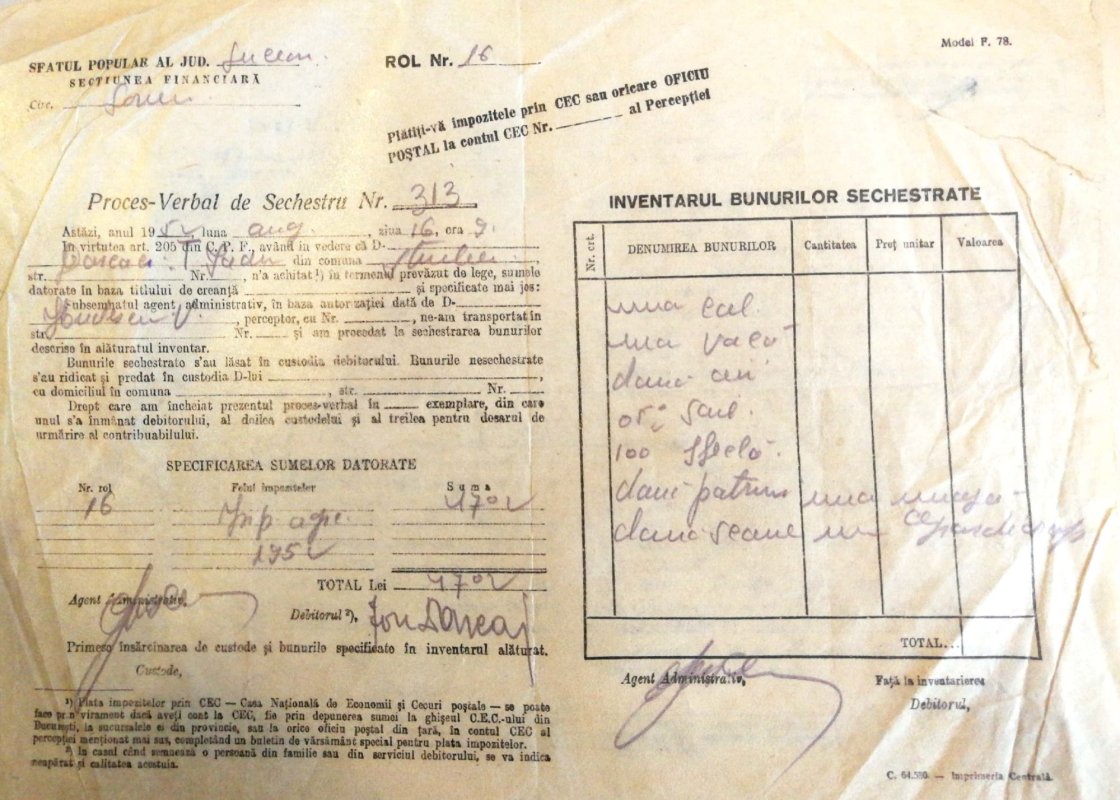 Model F. 78.
SFATUL POPULAR AL JUD.
SECȚIUNEA FINANCIARĂ
Circ.
ROL Nr. 16
Plătiți-vă impozitele prin CEC sau oricare OFICIU
POȘTAL la contul CEC Nr. al Percepției
Proces-Verbal de Sechestru Nr. 313
Astăzi, anul 1952 luna aug. , ziua 16, ora 9.
În virtutea art. 205 din C. P. F., având în vedere că D-
din comuna ,
str. Nr. , n'a achitat ¹) în termenul prevăzut de lege, sumele
datorate în baza titlului de creanță și specificate mai jos:
Subsemnatul agent administrativ, în baza autorizației dată de D-
Ionescu V. , perceptor, cu Nr. , ne-am transportat în
str. Nr. și am procedat la sechestrarea bunurilor
descrise în alăturatul inventar.
Bunurile sechestrate s'au lăsat în custodia debitorului. Bunurile nesechestrate
s'au ridicat și predat în custodia D-lui ,
cu domiciliul în comuna , str. Nr. ,
Drept care am încheiat prezentul proces-verbal în exemplare, din care
unul s'a înmânat debitorului, al doilea custodelui și al treilea pentru dosarul de
urmărire al contribuabilului.
SPECIFICAREA SUMELOR DATORATE
Nr. rol Felul impozitelor Suma
16 Imp agr. 1702
1952
TOTAL Lei 1702
Agent Administrativ,
Debitorul ²), Ion Dascaj
Primesc însărcinarea de custode și bunurile specificate în inventarul alăturat.
Custode,
¹) Plata impozitelor prin CEC — Casa Națională de Economii și Cecuri poștale — se poate
face prin virament dacă aveți cont la CEC, fie prin depunerea sumei la ghișeul C.E.C.-ului din
București, la sucursalele ei din provincie, sau la orice oficiu poștal din țară, în contul CEC al
percepției menționat mai sus, completând un buletin de vărsământ special pentru plata impozitelor.
²) În cazul când semnează o persoană din familie sau din serviciul debitorului, se va indica
neapărat și calitatea acestuia.
INVENTARUL BUNURILOR SECHESTRATE
Nr. crt. DENUMIREA BUNURILOR Cantitatea Preț unitar Valoarea
una cal.
una vacă
două
100 sfeclă.
două una
două scaune
TOTAL...
Agent Administrativ,
Față la inventarierea
Debitorul,
C. 64.580. — Imprimeria Centrală.